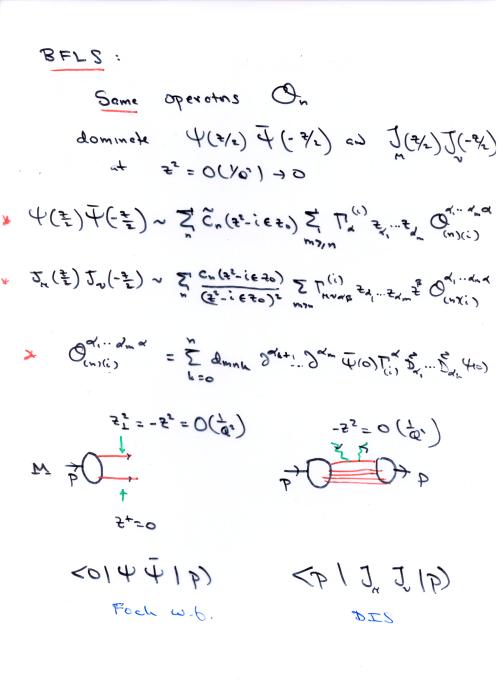 BFLS :
Same operators O_n
dominate Ψ(z/2) Ψ̄(-z/2) and J_μ(z/2) J_ν(-z/2)
at z² = O(1/Q²) → 0
* Ψ(z/2) Ψ̄(-z/2) ~ Σ_n C̃_n(z²-iεz₀) Σ_{m≥n} Γ_α^{(i)} z_{α₁}...z_{αm} O_{(n)(i)}^{α₁...αm α}
* J_μ(z/2) J_ν(-z/2) ~ Σ_n C_n(z²-iεz₀)/(z²-iεz₀)² Σ_{m≥n} Γ_{μναβ}^{(i)} z_{α₁}...z_{αm} z^β O_{(n)(i)}^{α₁...αm α}
* O_{(n)(i)}^{α₁...αm α} = Σ_{k=0}^{n} d_{mnk} ∂^{α_{k+1}}...∂^{αm} Ψ̄(0) Γ_{(i)}^α D_{α₁}...D_{αk} Ψ(0)
z_⊥² = -z² = O(1/Q²)
-z² = O(1/Q²)
M P
P P
z⁺=0
<0|Ψ Ψ̄|P>
<P|J_μ J_ν|P>
Fock w.f.
DIS